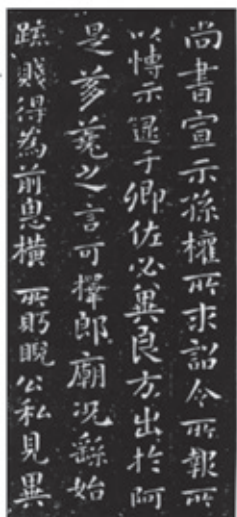 尚書宣示孫權所求詔令所報所
以愽示逮于卿佐必冀良方出於阿
是芻蕘之言可擇郎廟況繇始
疏賤得為前恩橫所盻睨公私見異